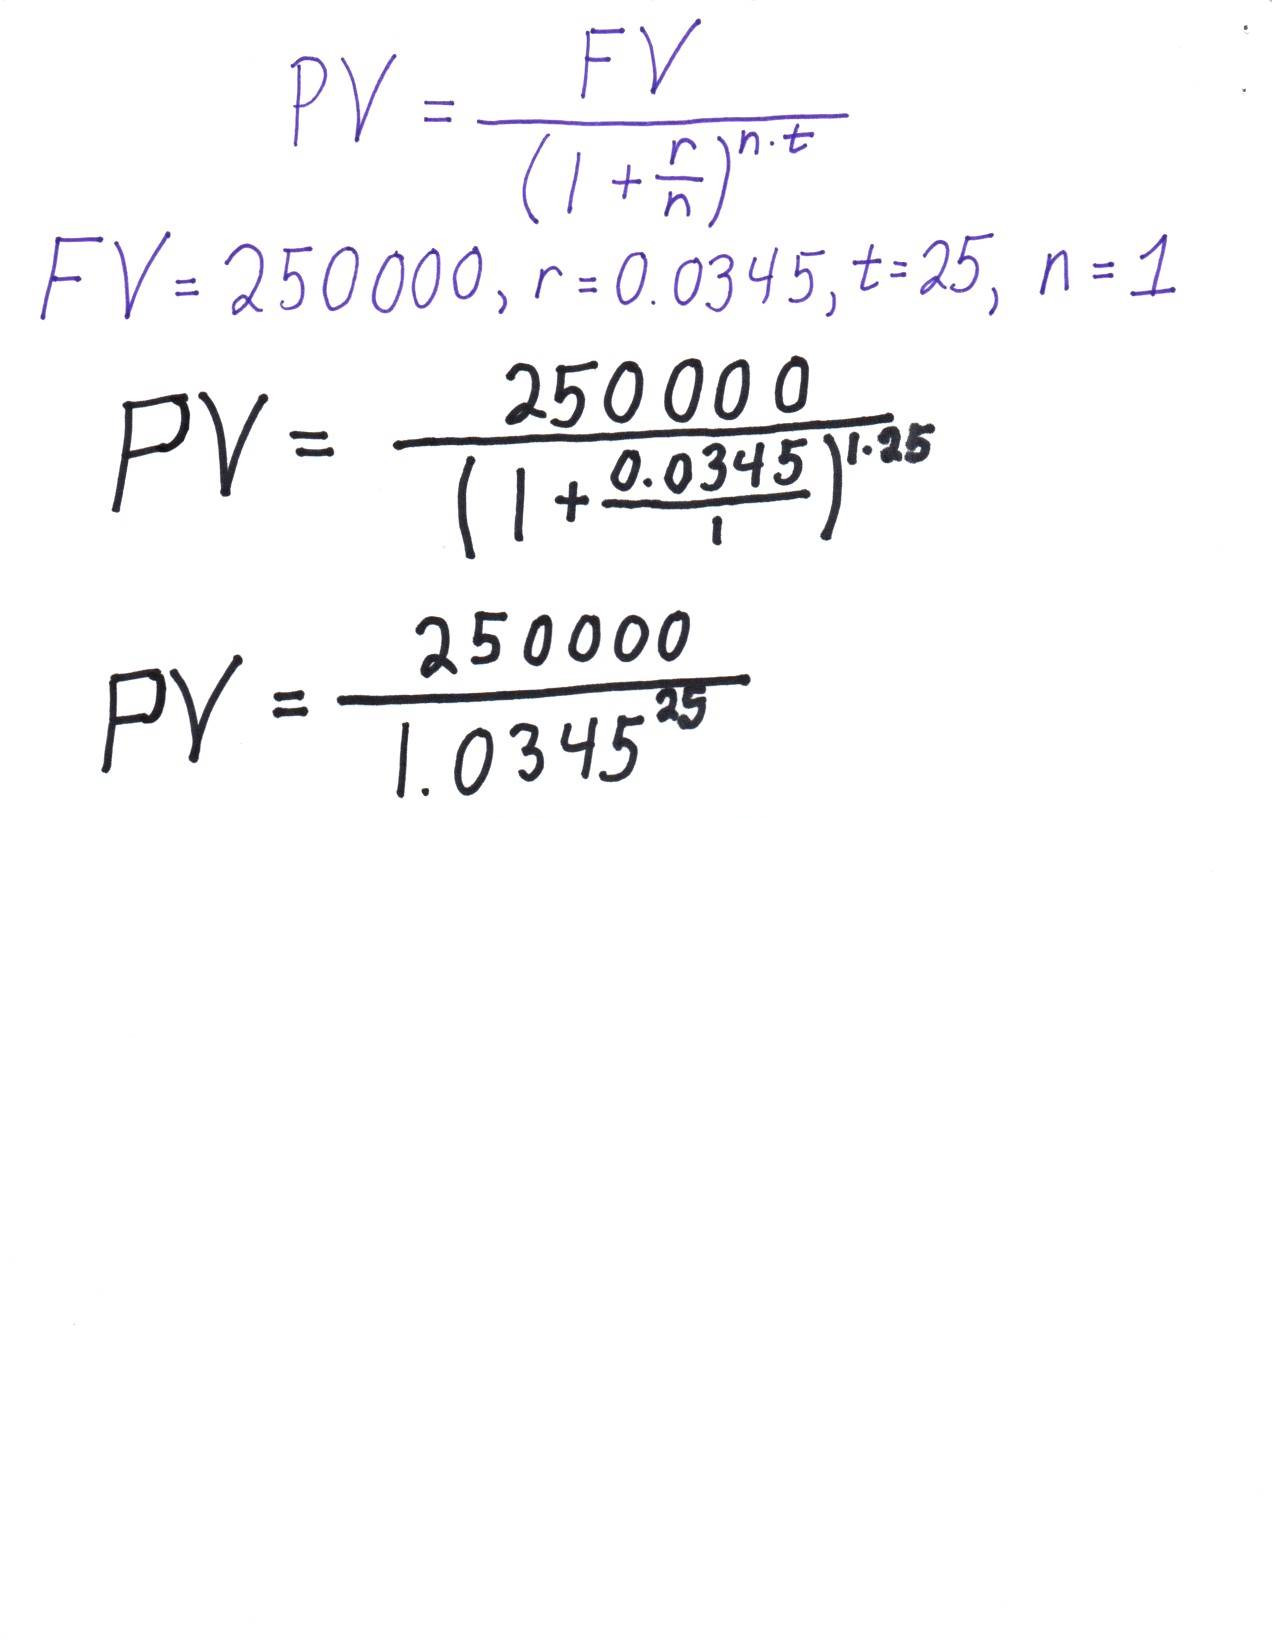 PV = FV / (1 + r/n)^(n·t)
FV = 250000, r = 0.0345, t = 25, n = 1
PV = 250000 / (1 + 0.0345/1)^(1·25)
PV = 250000 / 1.0345^25